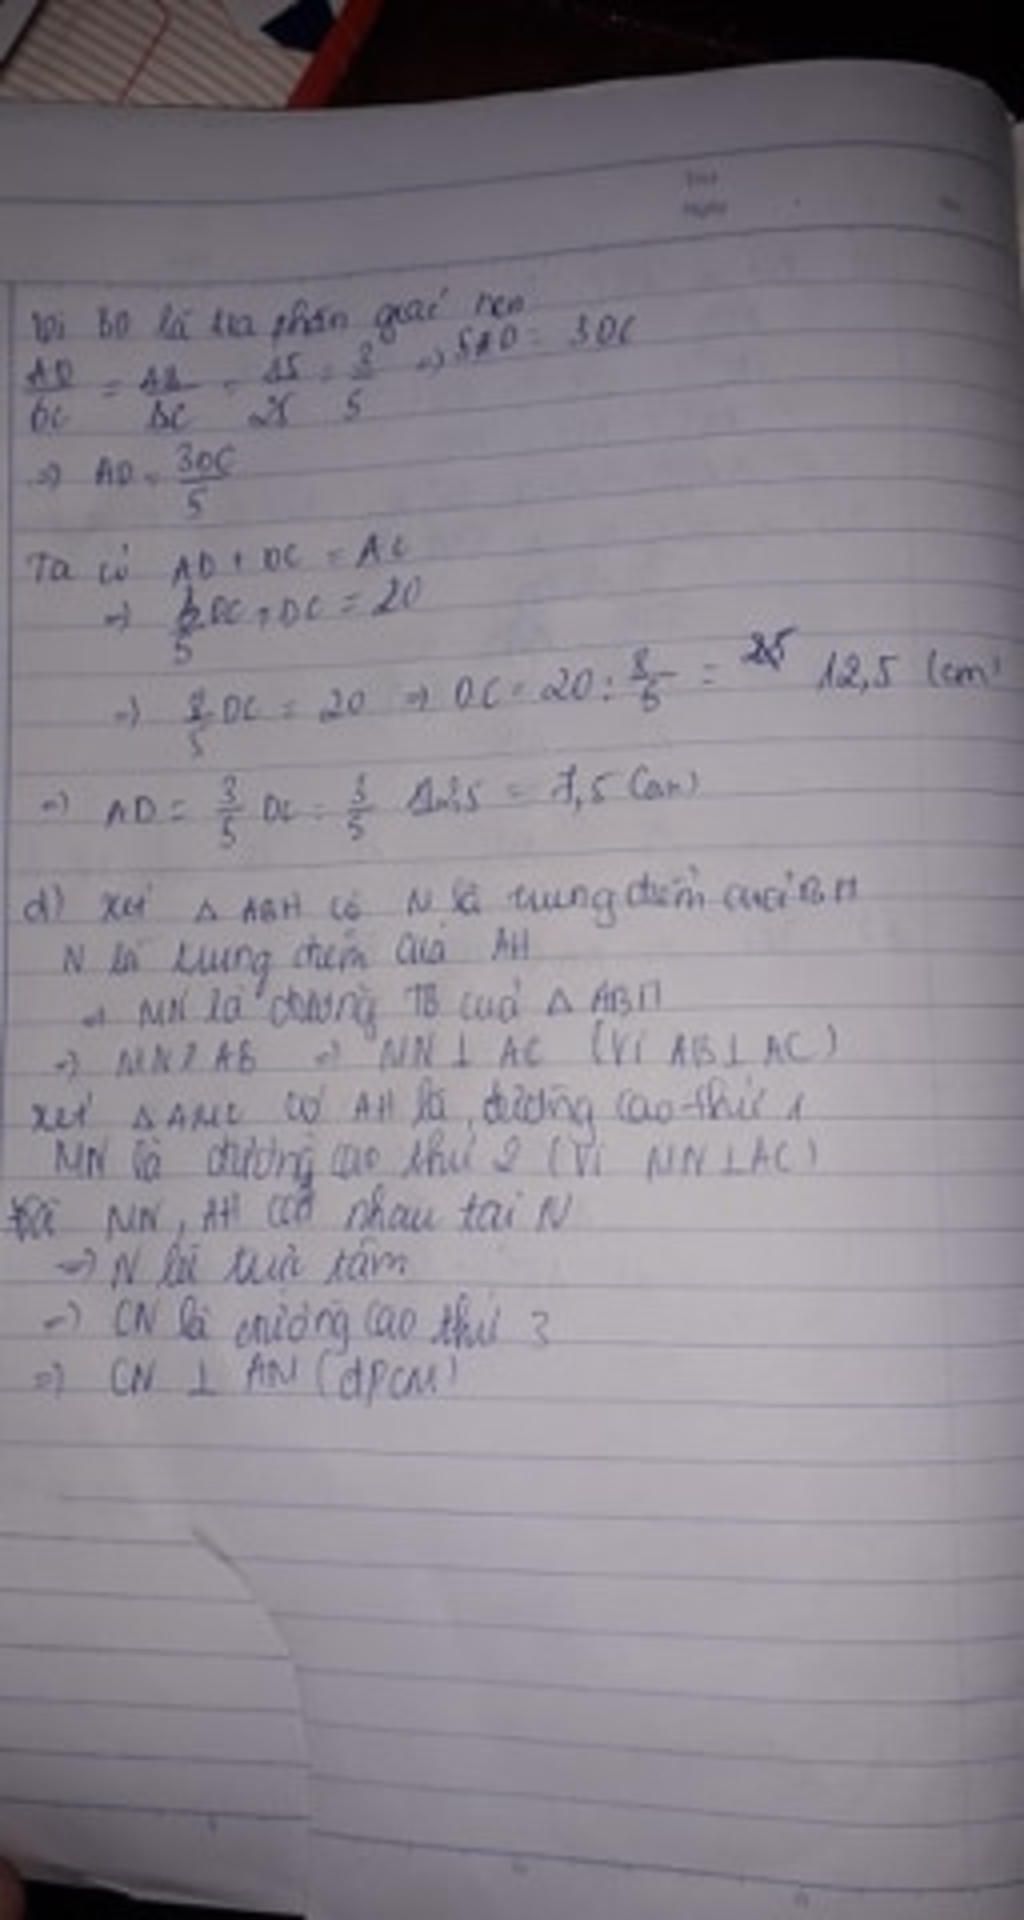 Thứ
Ngày
No.
Vì BD là tia phân giác nên
AD/DC = AB/BC = 15/25 = 3/5 => 5AD = 3DC
=> AD = 3DC/5
Ta có AD + DC = AC
=> 3/5 DC + DC = 20
=> 8/5 DC = 20 => DC = 20 : 8/5 = 12,5 (cm)
=> AD = 3/5 DC = 3/5 12,5 = 7,5 (cm)
d) xét △ ABH có là trung điểm của BH
N là trung điểm của AH
=> MN là đường TB của △ ABH
=> MN // AB => MN ⊥ AC (Vì AB ⊥ AC)
xét △ AMC có AH là đường cao thứ 1
MN là đường cao thứ 2 (Vì MN ⊥ AC)
MN, AH cắt nhau tại N
=> N là trực tâm
=> CN là đường cao thứ 3
=> CN ⊥ (đpcm)